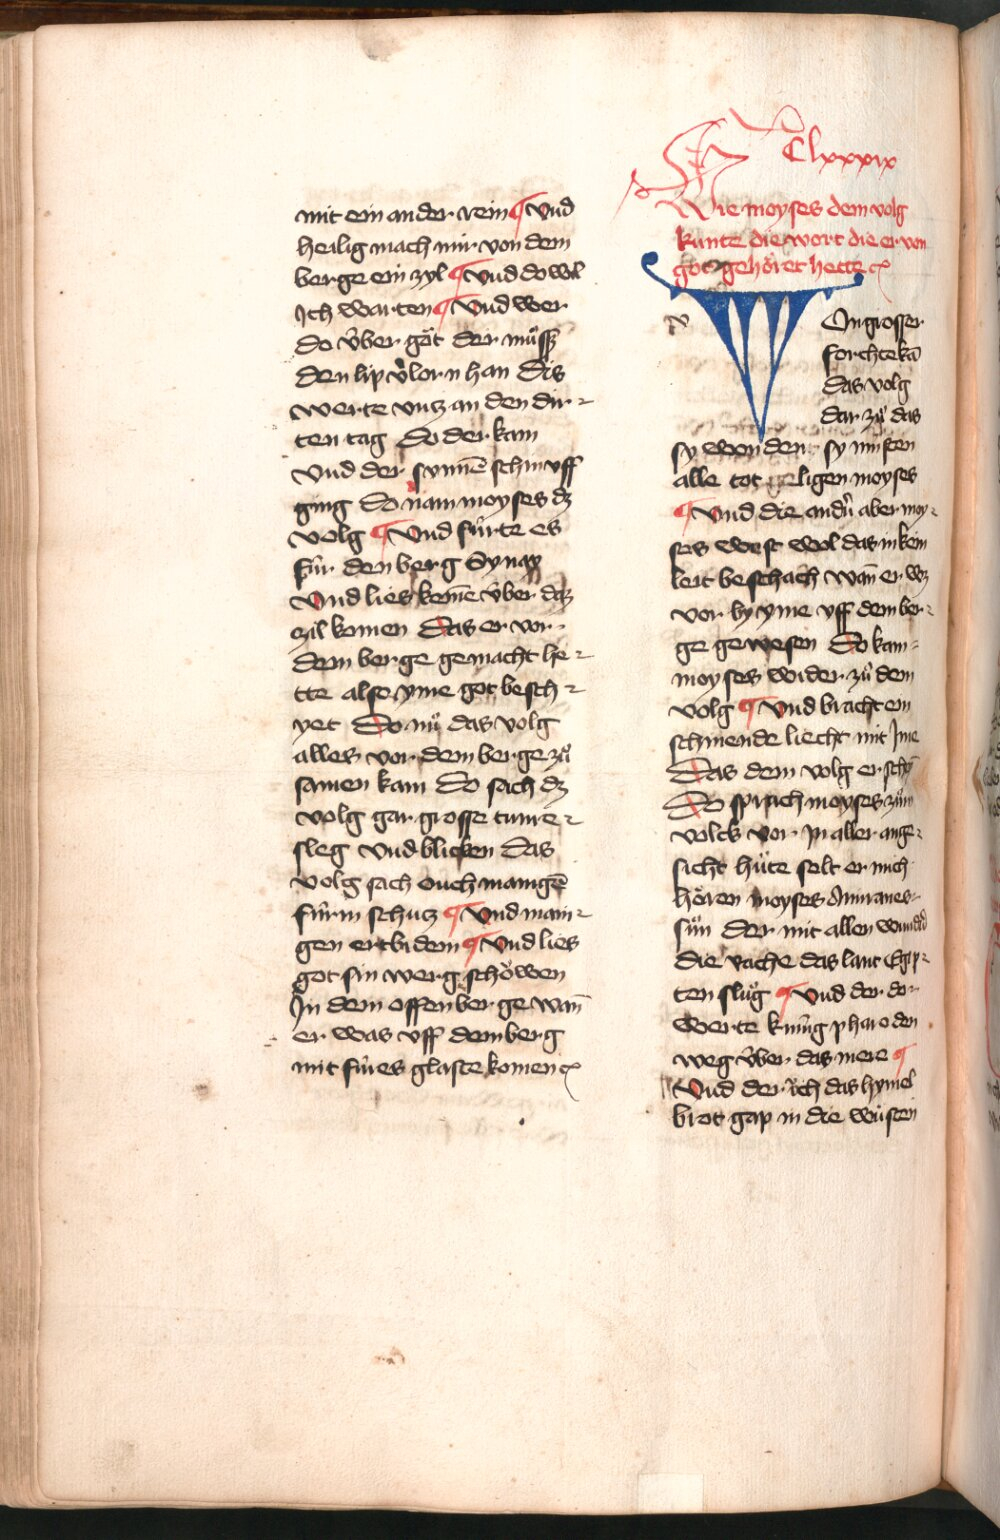 mit ein ander rein ¶ Vnd
heilig mach mir von dem
berge ein zyl ¶ Vnd do wol
Ich warten ¶ Vnd wer
do vͤber got der muͤssz
den lip v̓lorn han Dis
werte vntz an den dir-
ten tag Do der kam
Vnd der sunnē schin vff
ging Do nam moyses dz
volg ¶ Vnd fuͤrte es
fuͤr den berg Synay
Vnd lies kemē vͤber das
zil komen Das er vor
dem berge gemacht he-
tte also yme got besch-
yet Do nuͦ das volg
alles vor dem berge zuͦ
samen kam Do sach dz
volg gar grosse tunre-
sleg Vnd blicken Das
volg sach ouch manigē
fuͤrin schutz ¶ Vnd mani-
gen ertbidem ¶ Vnd lies
got sin werg schoͤwen
In dem offen berge wan̄
er was vff dem berg
mit fuͤres glaste komen
Clxxxix
Wie moyses dem volg
kunte die wort die er von
got gehoͤret hette
v
VOn grosser
forchte kā
das volg
dar zuͦ das
sy wonden sy muͤsten
alle tot geligen moyses
¶ Vnd die andn̄ aber moy-
ses west wol das in kein
leit beschach wan̄ er wz
vor by yme vff dem ber-
ge gewesen Do kam
moyses wider zuͦ dem
volg ¶ Vnd bracht ein
schinende liecht mit Ime
Das dem volg erscheī
Do sprach moyses zuͦm
volck vor In aller ange-
sicht huͤte solt er mich
hoͤren moyses Amranes
suͤn Der mit allen
die rache das lant Egip-
ten sluͦg ¶ Vnd der do
werte kuͤnig pharo den
weg vͤber das mere ¶
Vnd der uͤch das hymel
brot gap in die wuͤsten